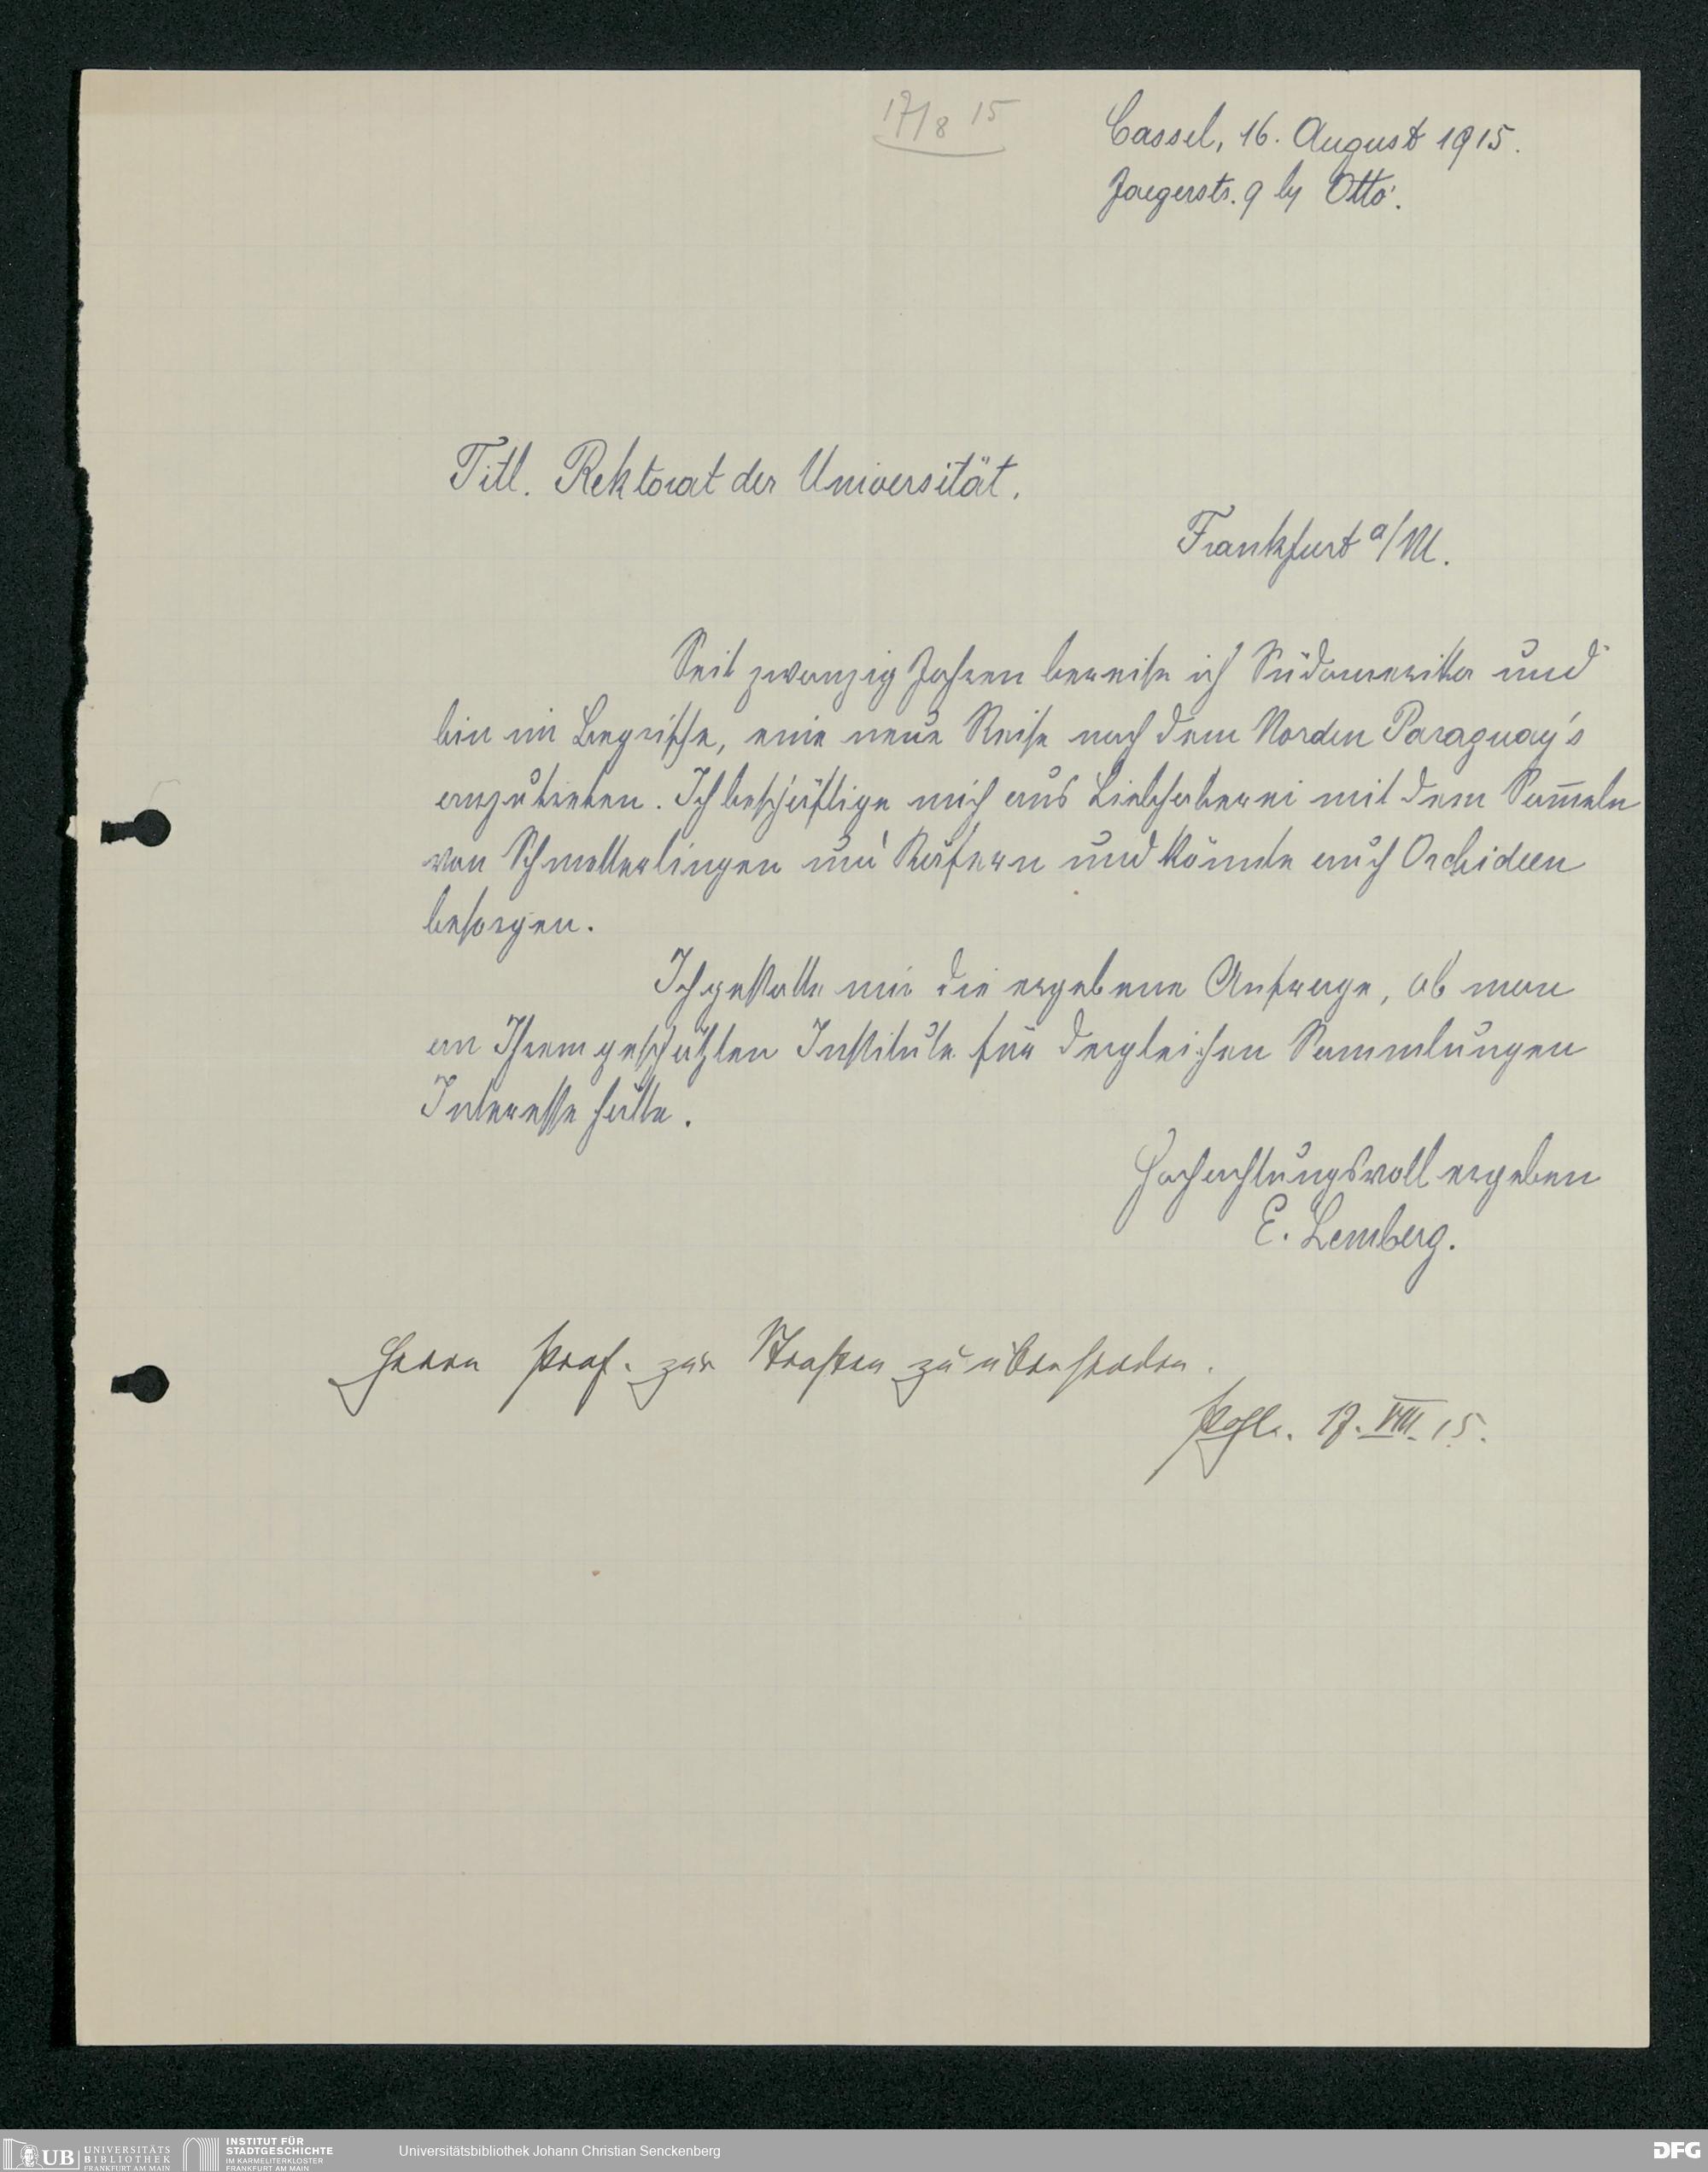 17/8 15
Cassel, 16. August 1915.
Jaegerstr. 9 by Otto.
Titl. Rektorat der Universität.
Frankfurt a/M.
Seit zwanzig Jahren bereise ich Südamerika und
bin im Begriffe, eine neue Reise nach dem Norden Paraguay's
anzutreten. Ich beschäftige mich aus Liebhaberei mit dem Sam̅eln
von Schmetterlingen und Käfern und könnte auch Orchideen
besorgen.
Ich gestatte mir die ergebene Anfrage, ob man
an Ihrem geschätzten Institute für dergleichen Sammlungen
Interesse hätte.
Hochachtungsvoll ergeben
E. Lemberg.
Herrn Prof. zur Strassen zu übersenden.
17. VIII. 15.
UB UNIVERSITÄTS
BIBLIOTHEK
FRANKFURT AM MAIN
INSTITUT FÜR
STADTGESCHICHTE
IM KARMELITERKLOSTER
FRANKFURT AM MAIN
Universitätsbibliothek Johann Christian Senckenberg
DFG